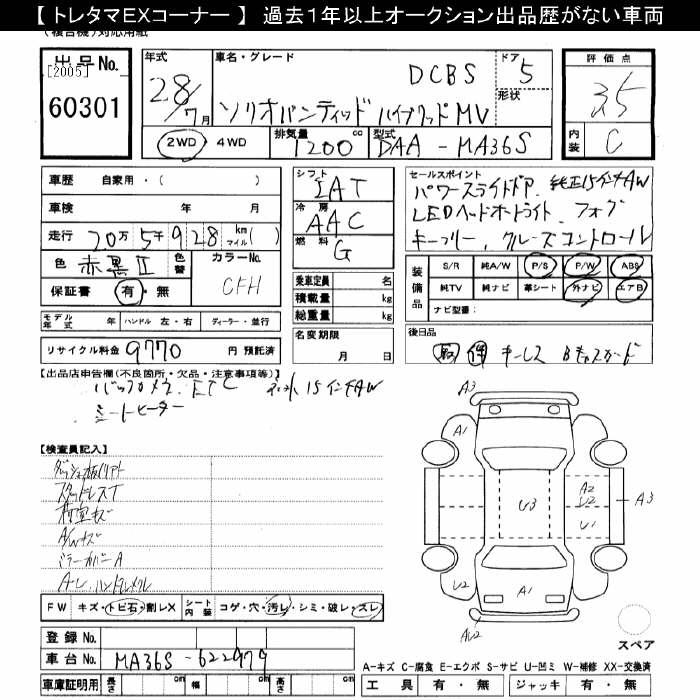 【 トレタマEXコーナー 】 過去1年以上オークション出品歴がない車両
出品No.
[2005]
60301
年式
28/7月
車名・グレード
DCBS
ソリオバンディット ハイブリッドMV
ドア
5
形状
2WD ・ 4WD
排気量
1200 cc
型式
DAA - MA36S
評価点
3.5
内装
C
車歴 自家用・( )
車検 年 月
走行 20万 5千 928 km マイル( )
色 赤黒II 色替
カラーNo.
CFH
保証書 有・無
モデル年式 年 ハンドル 左・右 ディーラー・並行
リサイクル料金 9770 円 預託済
シフト
IAT
冷房
AAC
燃料
G
乗車定員 名
積載量 kg
総重量 kg
名変期限
月 日
セールスポイント
パワースライドドア、純正15インチAW
LEDヘッドオートライト、フォグ
キーフリー、クルーズコントロール
装備品
S/R 純A/W P/S P/W ABS
純TV 純ナビ 革シート 外ナビ エアB
ナビ型番:
後日品
取 保 キーレス
【出品店申告欄(不良箇所・欠品・注意事項等)】
バックカメラ、ETC 15インチAW
シートヒーター
【検査員記入】
スタッドレスT
内室キズ
A/Wキズ
ミラーカバーA
FW キズ・トビ石・割レX シート内装 コゲ・穴・汚レ・シミ・破レ・スレ
登録 No.
車台 No. MA36S - 622979
車庫証明用 長さ cm 幅 cm 高さ cm
A3
A1
U3
A2
U2
U1
A3
U2
A1
AU2
スペア
A-キズ C-腐食 E-エクボ S-サビ U-凹ミ W-補修 XX-交換済
工具 有・無 ジャッキ 有・無